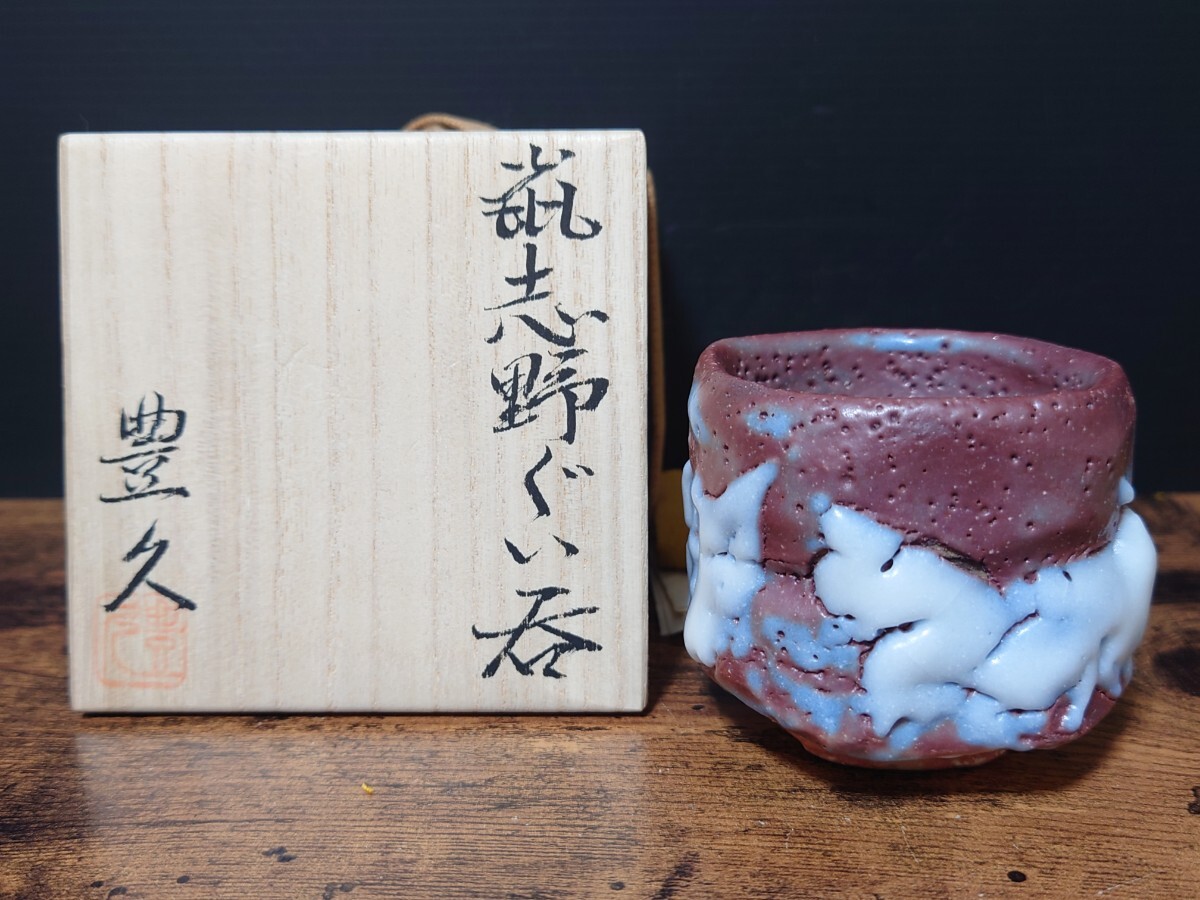 鼠志野ぐい呑
豊久